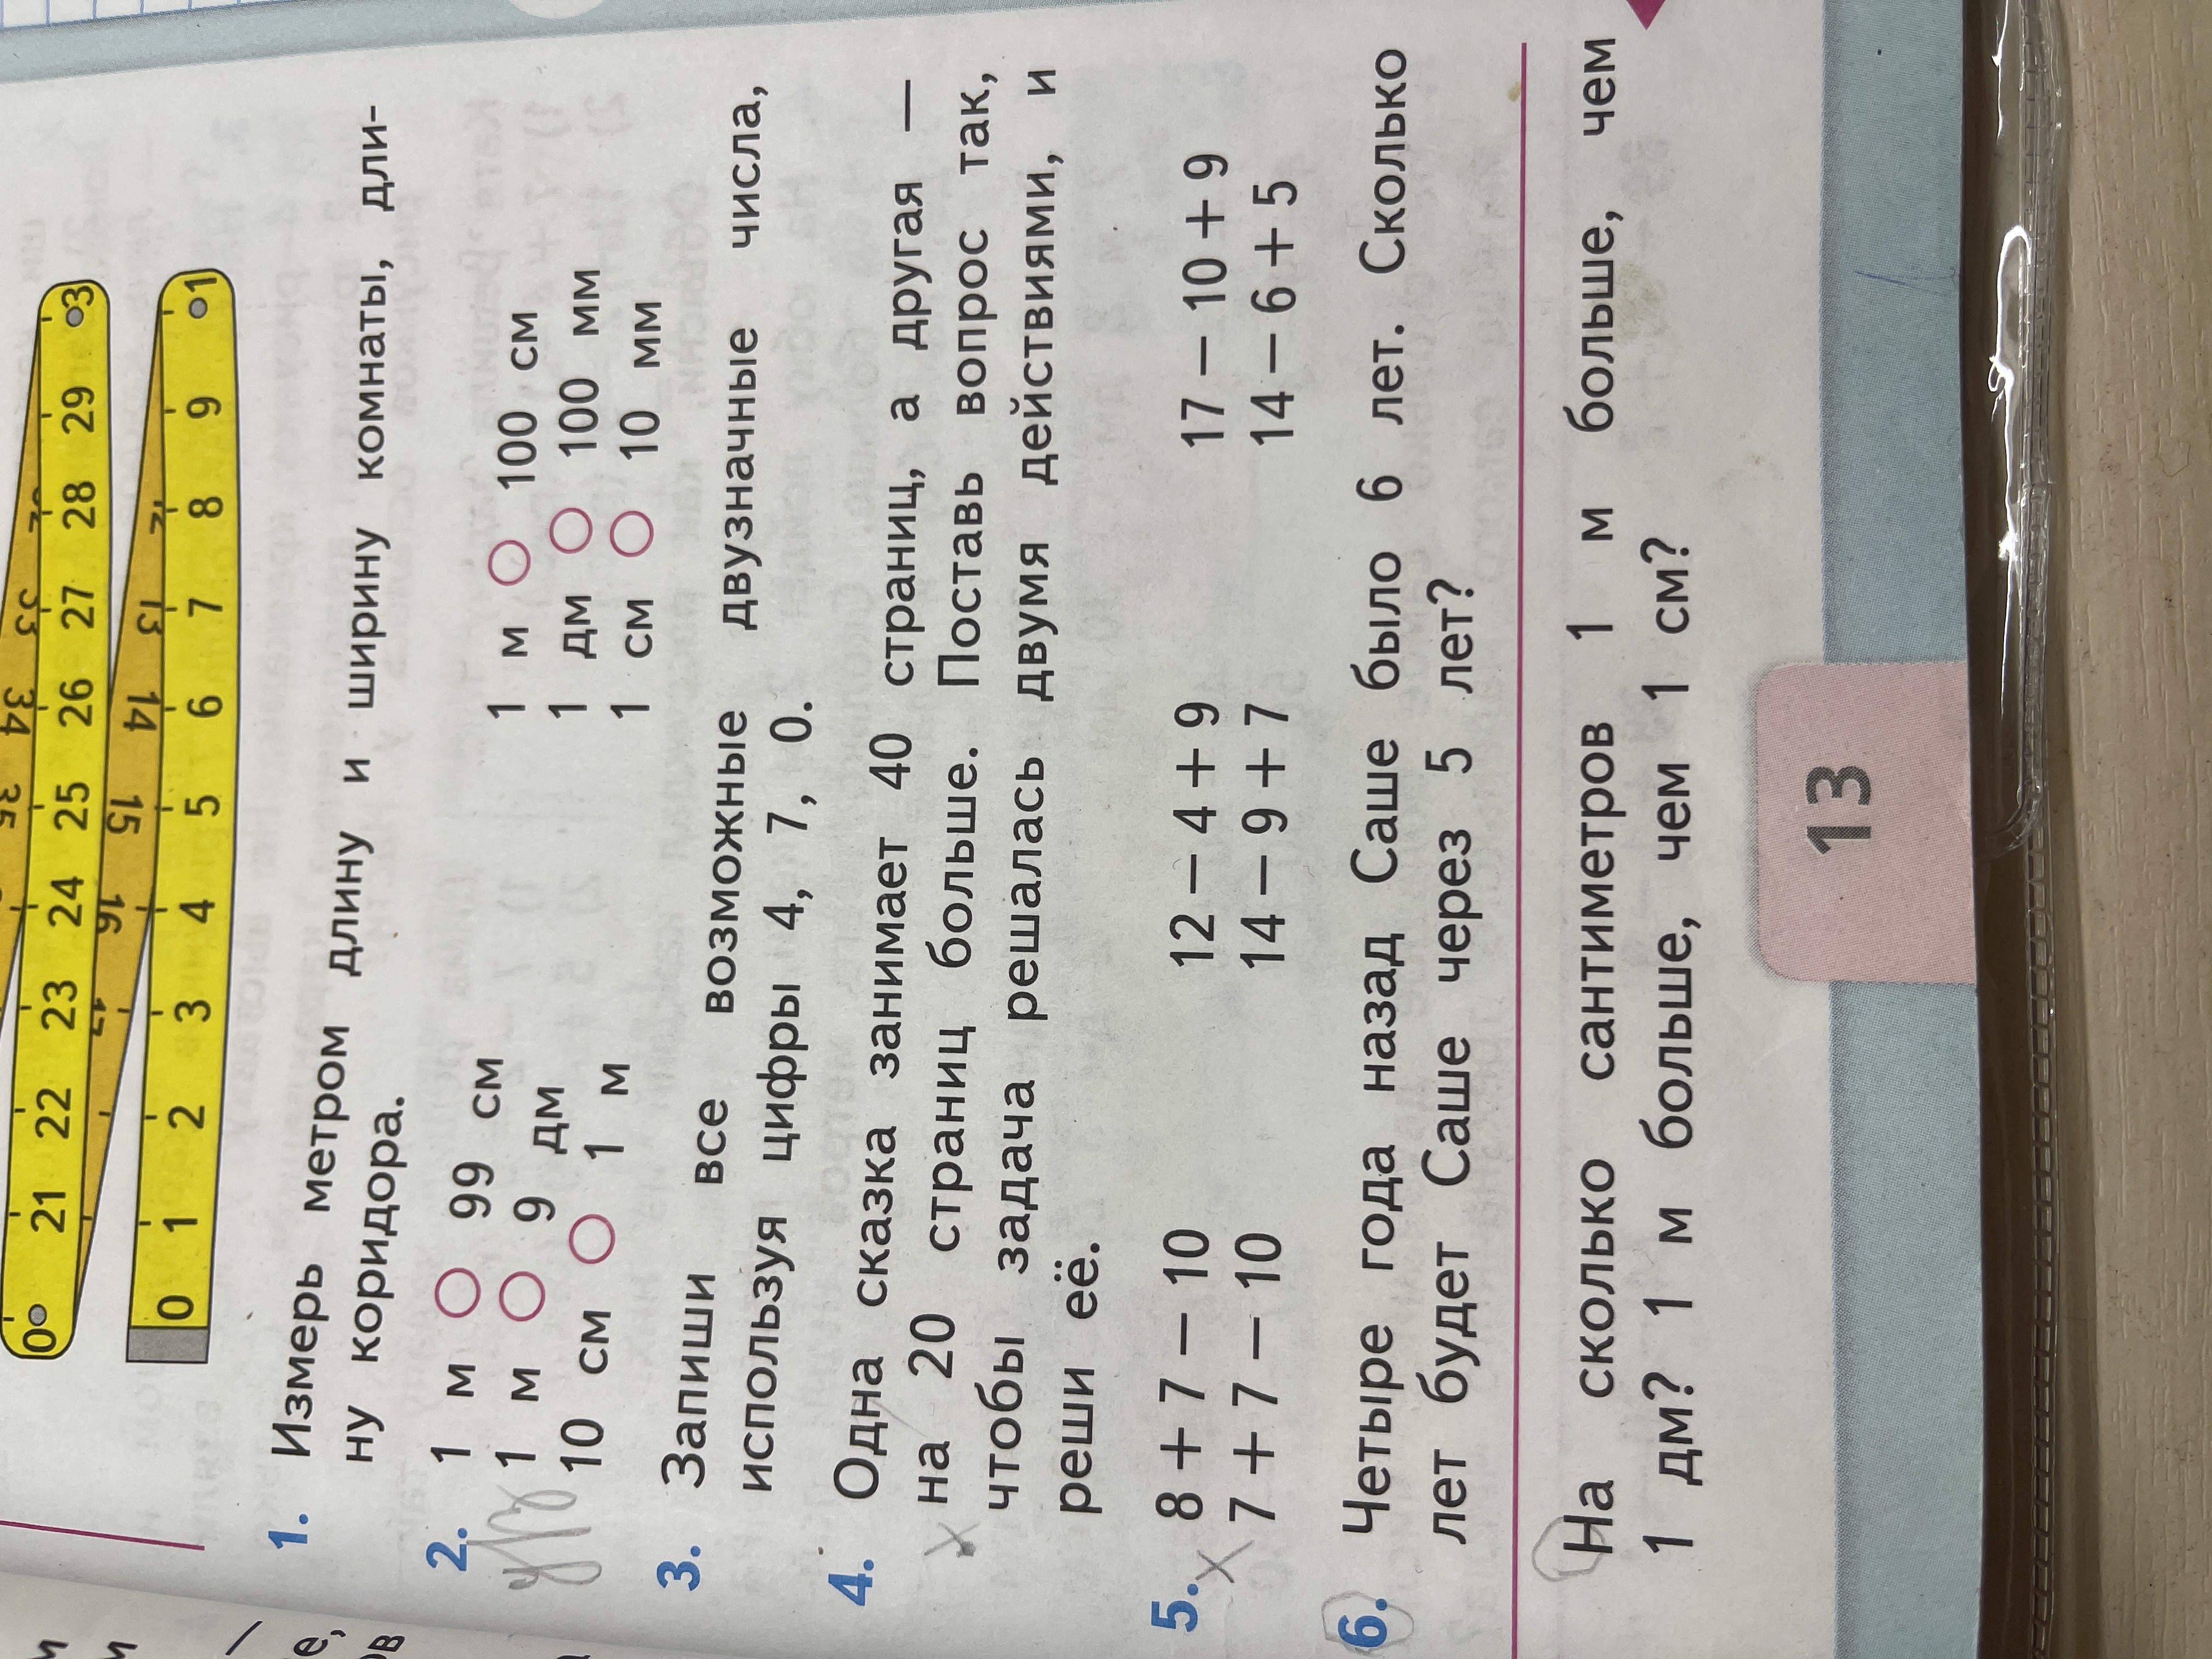 21 22 23 24 25 26 27 28 29 3
16 15 14 13
0 1 2 3 4 5 6 7 8 9 1
1. Измерь метром длину и ширину комнаты, дли-
ну коридора.
2. 1 м ○ 99 см 1 м ○ 100 см
1 м ○ 9 дм 1 дм ○ 100 мм
10 см ○ 1 м 1 см ○ 10 мм
3. Запиши все возможные двузначные числа,
используя цифры 4, 7, 0.
4. Одна сказка занимает 40 страниц, а другая —
на 20 страниц больше. Поставь вопрос так,
чтобы задача решалась двумя действиями, и
реши её.
5. 8 + 7 − 10 12 − 4 + 9 17 − 10 + 9
7 + 7 − 10 14 − 9 + 7 14 − 6 + 5
6. Четыре года назад Саше было 6 лет. Сколько
лет будет Саше через 5 лет?
На сколько сантиметров 1 м больше, чем
1 дм? 1 м больше, чем 1 см?
13